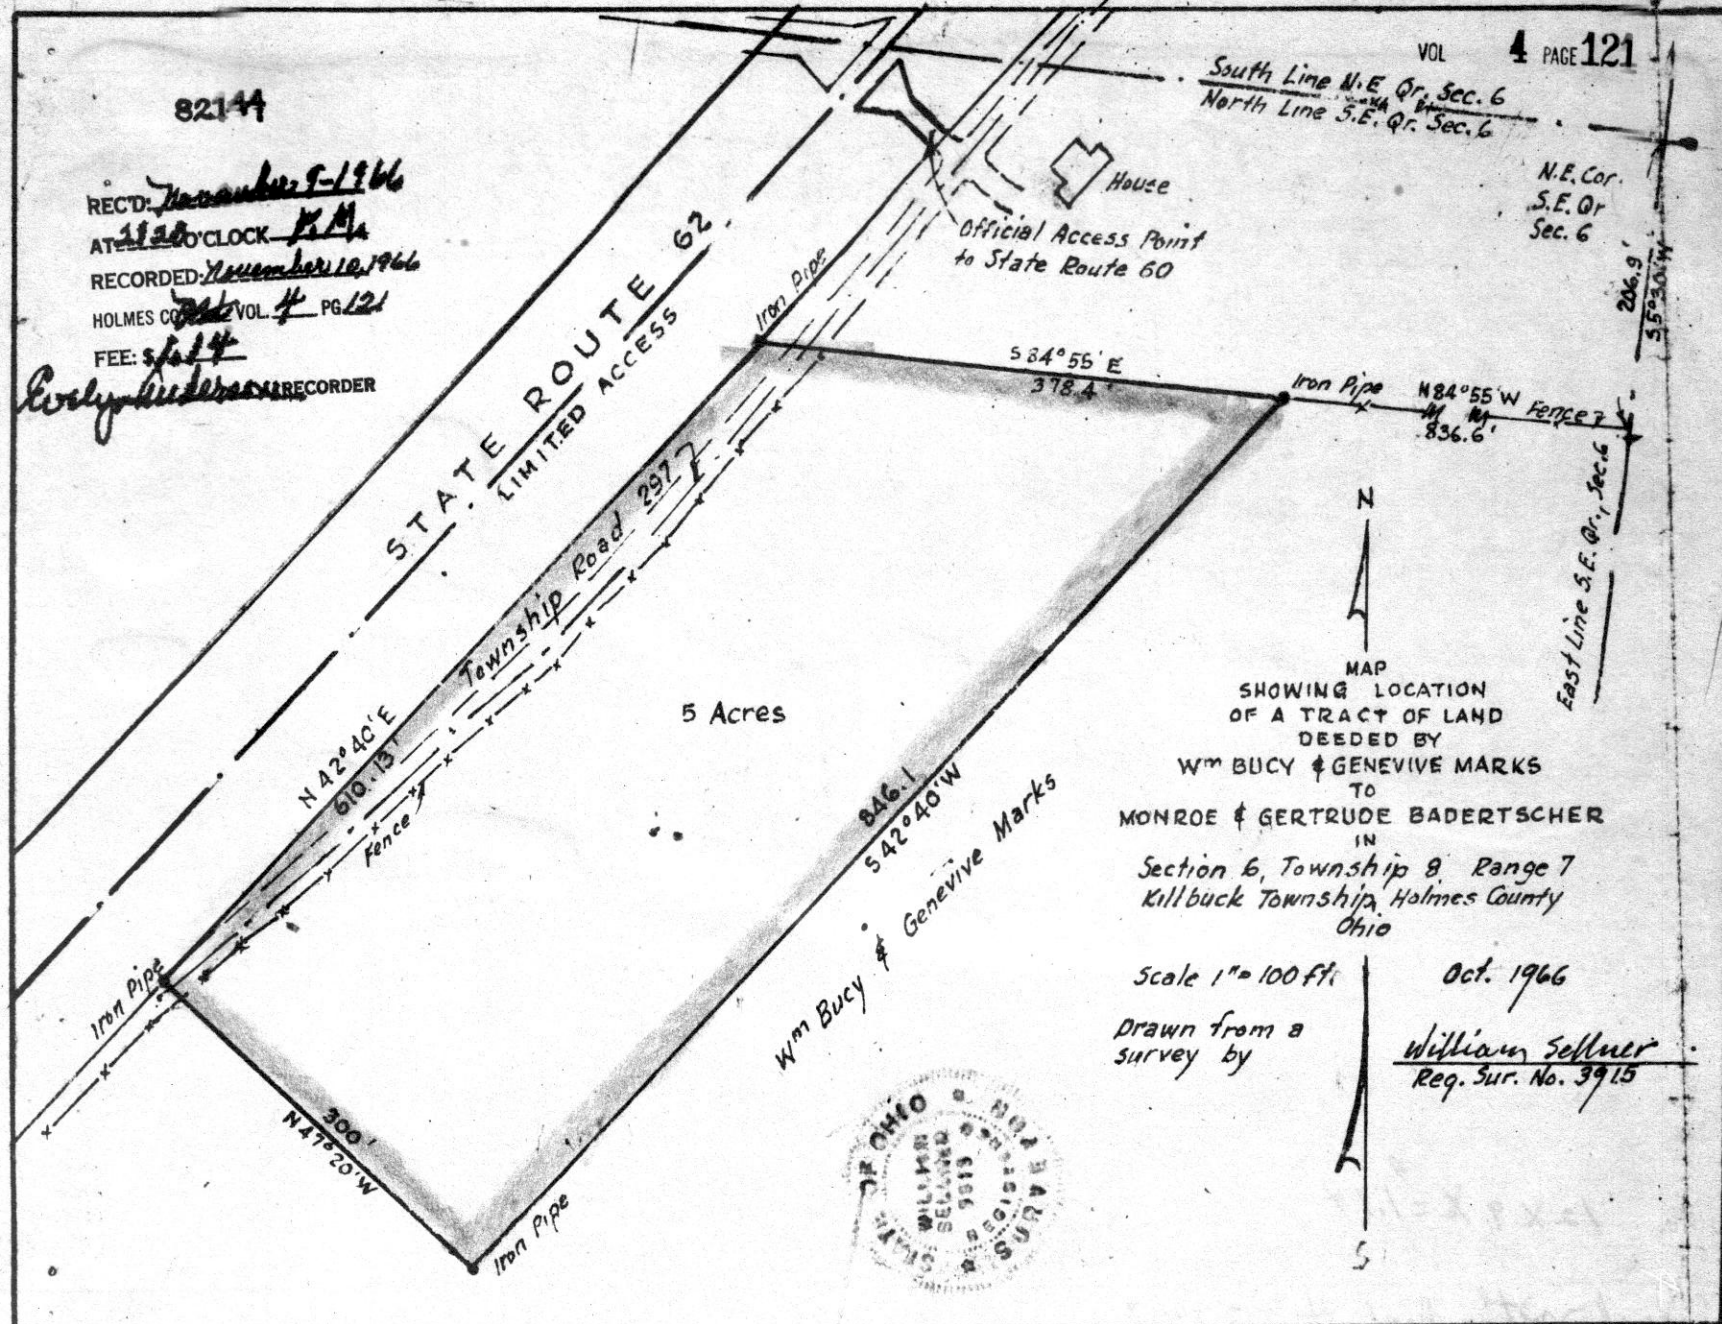 VOL 4 PAGE 121
82144
REC'D: November 9-1966
AT O'CLOCK P.M.
RECORDED: November 10, 1966
HOLMES CO. VOL. 4 PG 121
FEE: $
Evelyn Anderson RECORDER
South Line N.E. Qr. Sec. 6
North Line S.E. Qr. Sec. 6
N.E. Cor.
S.E. Qr
Sec. 6
206.9'
S5°30'W
House
Official Access Point
to State Route 60
STATE ROUTE 62
LIMITED ACCESS
Iron Pipe
S 84°55' E
378.4'
Iron Pipe
N84°55'W
836.6'
Fence
East Line S.E. Qr., Sec. 6
Township Road 297
N 42°40'E
610.13'
Fence
5 Acres
846.1
S 42°40'W
Wm Bucy & Genevive Marks
Iron Pipe
300'
N47°20'W
Iron Pipe
N
MAP
SHOWING LOCATION
OF A TRACT OF LAND
DEEDED BY
Wm BUCY & GENEVIVE MARKS
TO
MONROE & GERTRUDE BADERTSCHER
IN
Section 6, Township 8 Range 7
Killbuck Township, Holmes County
Ohio
Scale 1"= 100 ft.
Oct. 1966
Drawn from a
survey by
William Sellner
Reg. Sur. No. 3915
S
STATE OF OHIO
WILLIAM
SELLNER
3915
REGISTERED
SURVEYOR